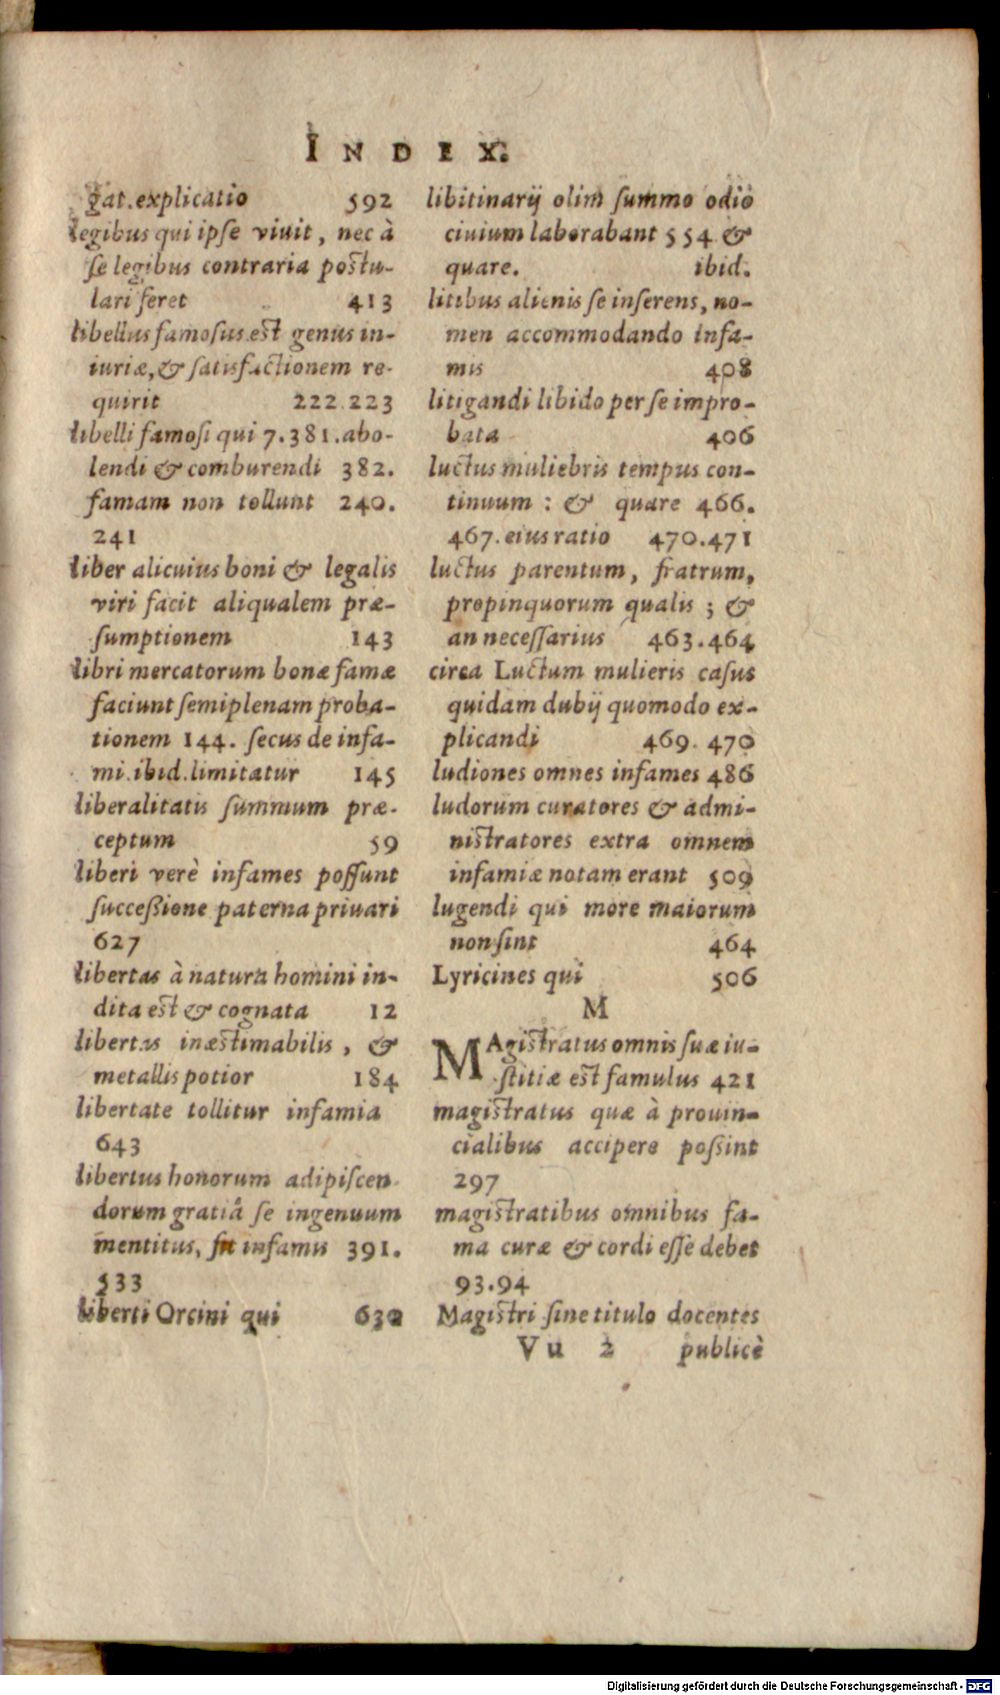 INDEX.
gat. explicatio 592
legibus qui ipse viuit, nec à
se legibus contraria postu-
lari feret 413
libellus famosus est genus in-
iuriæ, & satisfactionem re-
quirit 222.223
libelli famosi qui 7.381. abo-
lendi & comburendi 382.
famam non tollunt 240.
241
liber alicuius boni & legalis
viri facit aliqualem præ-
sumptionem 143
libri mercatorum bonæ famæ
faciunt semiplenam proba-
tionem 144. secus de infa-
mi. ibid. limitatur 145
liberalitatis summum præ-
ceptum 59
liberi verè infames possunt
successione paterna priuari
627
libertas à natura homini in-
dita est & cognata 12
libertas inæstimabilis, &
metallis potior 184
libertate tollitur infamia
643
libertus honorum adipiscen-
dorum gratiâ se ingenuum
mentitus, fit infamis 391.
533
liberti Orcini qui 630
libitinarij olim summo odio
ciuium laborabant 554 &
quare. ibid.
litibus alienis se inserens, no-
men accommodando infa-
mis 408
litigandi libido per se impro-
bata 406
luctus muliebris tempus con-
tinuum : & quare 466.
467. eius ratio 470.471
luctus parentum, fratrum,
propinquorum qualis ; &
an necessarius 463.464
circa Luctum mulieris casus
quidam dubij quomodo ex-
plicandi 469. 470
ludiones omnes infames 486
ludorum curatores & admi-
nistratores extra omnem
infamiæ notam erant 509
lugendi qui more maiorum
non sint 464
Lyricines qui 506
M
MAgistratus omnis suæ iu-
stitiæ est famulus 421
magistratus quæ à prouin-
cialibus accipere possint
297
magistratibus omnibus fa-
ma curæ & cordi esse debet
93.94
Magistri sine titulo docentes
Vu 2 publicè
Digitalisierung gefördert durch die Deutsche Forschungsgemeinschaft - DFG